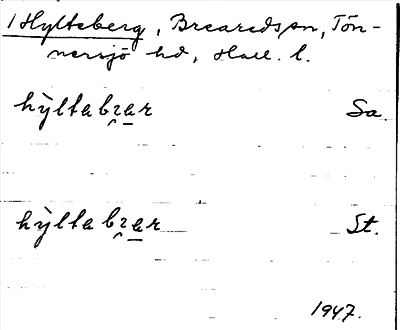 1 Hylteberg, Breareds sn, Tön-
nersjö hd, Hall. l.
hỳltabrar Sa.
hỳltabrar St.
1947.